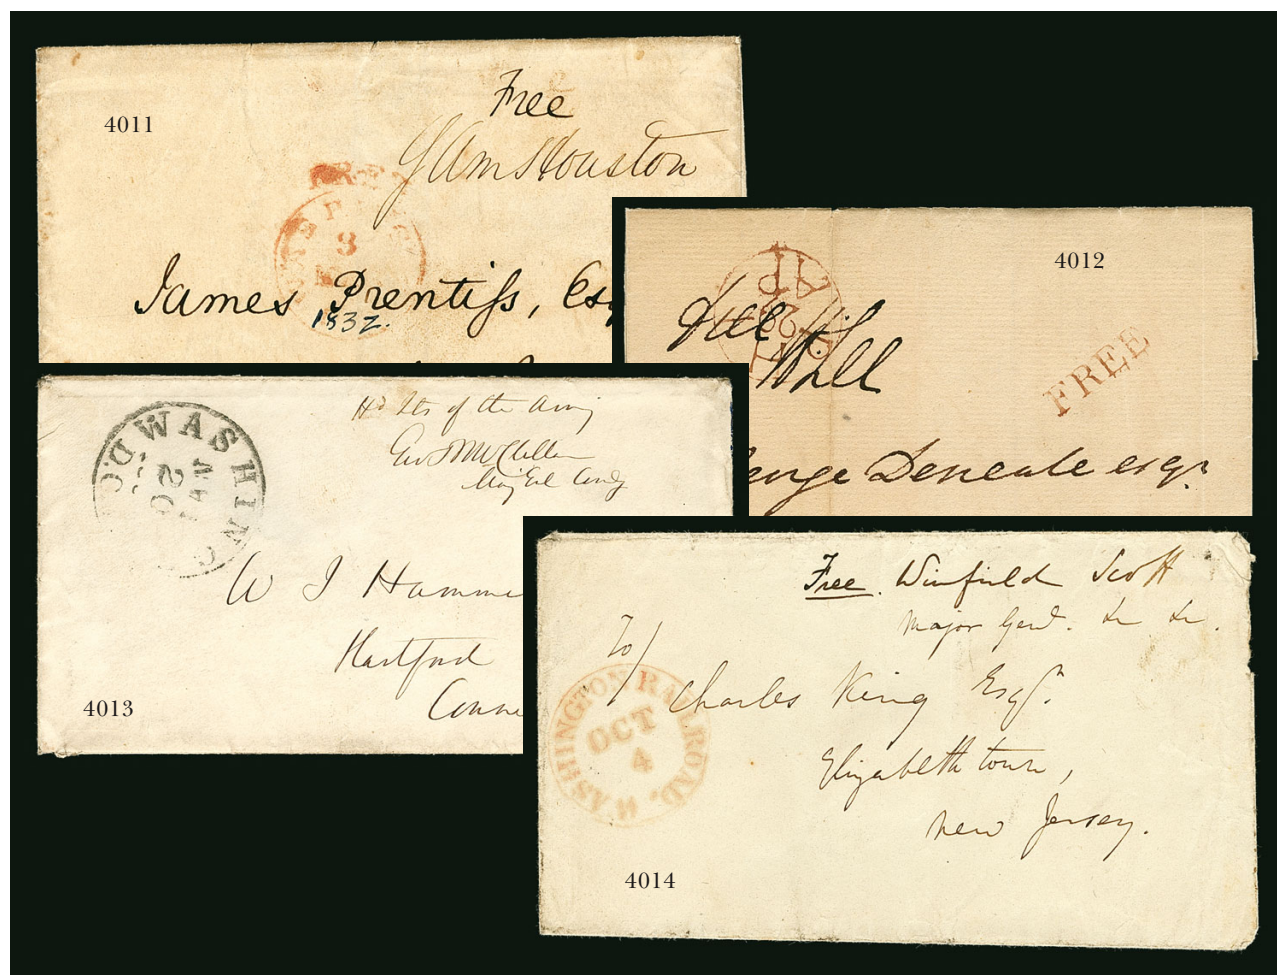 4011
Free
Sam Houston
FREE
3
James Prentiss, Esq
1832.
4012
AP
26
Free
Will
FREE
orge Deneale esqr.
Hd Qts of the Army
Geo B McClellan
Maj Genl Comdg
WASHING
D.C.
JAN
20
W J Hamme
Hartford
Conne
4013
Free. Winfield Scott
Major Genl. &c &c.
To/
Charles King Esqr.
Elizabethtown,
New Jersey.
WASHINGTON RAILROAD.
OCT
4
4014